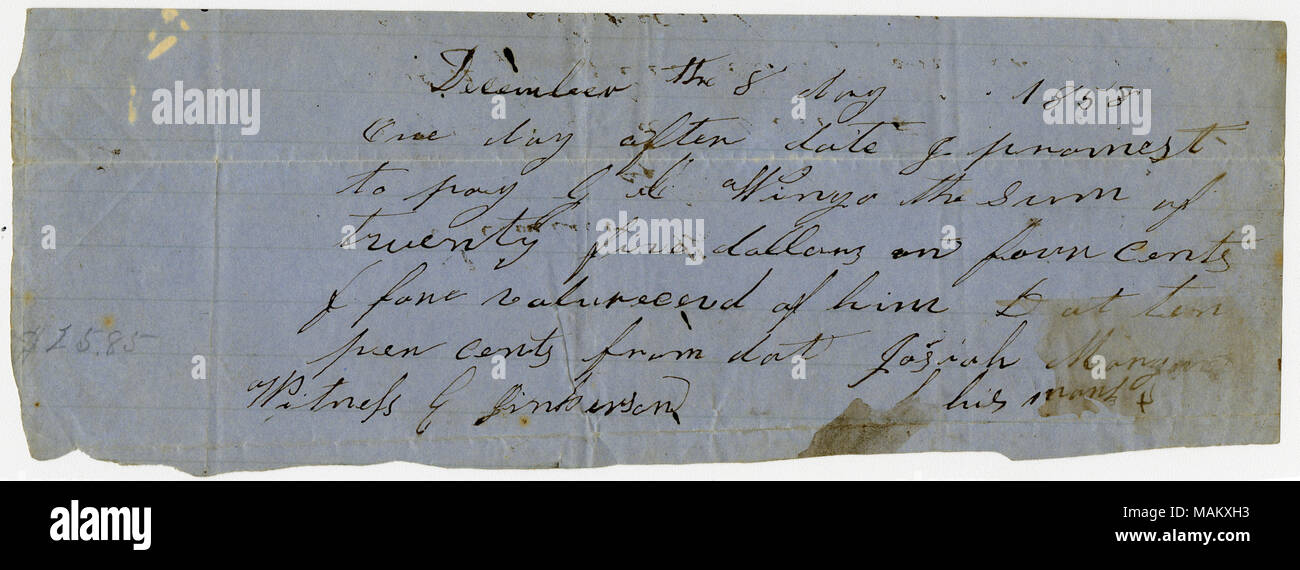 December the 8 day 1858
One day after date I promest
to pay G Wingo the sum of
twenty five dollars on four cents
f fore valu receivd of him D at ten
per cents from dat Josiah
Witness G Jinkerson his mark +
$25.85
alamy
Image ID: MAKXH3
www.alamy.com